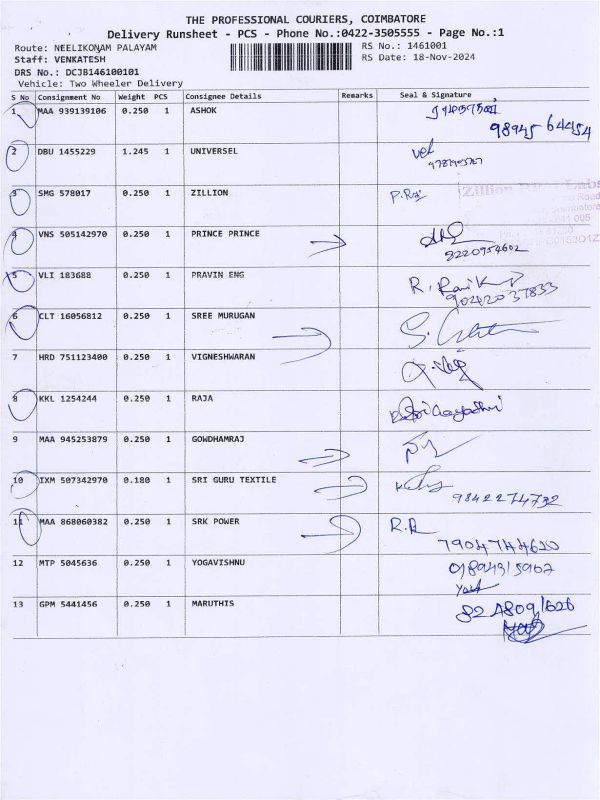 THE PROFESSIONAL COURIERS, COIMBATORE
Delivery Runsheet - PCS - Phone No.:0422-3505555 - Page No.:1
Route: NEELIKONAM PALAYAM RS No.: 1461001
Staff: VENKATESH RS Date: 18-Nov-2024
DRS No.: DCJB146100101
Vehicle: Two Wheeler Delivery
S No Consignment No Weight PCS Consignee Details Remarks Seal & Signature
1 MAA 939139106 0.250 1 ASHOK
98945 64454
2 DBU 1455229 1.245 1 UNIVERSEL
3 SMG 578017 0.250 1 ZILLION Zillion
4 VNS 505142970 0.250 1 PRINCE PRINCE
9220954602
5 VLI 183688 0.250 1 PRAVIN ENG
9042037833
6 CLT 16056812 0.250 1 SREE MURUGAN
7 HRD 751123400 0.250 1 VIGNESHWARAN
8 KKL 1254244 0.250 1 RAJA
9 MAA 945253879 0.250 1 GOWDHAMRAJ
10 IXM 507342970 0.180 1 SRI GURU TEXTILE
9842274732
11 MAA 868060382 0.250 1 SRK POWER R.R
7904744620
12 MTP 5045636 0.250 1 YOGAVISHNU
13 GPM 5441456 0.250 1 MARUTHIS